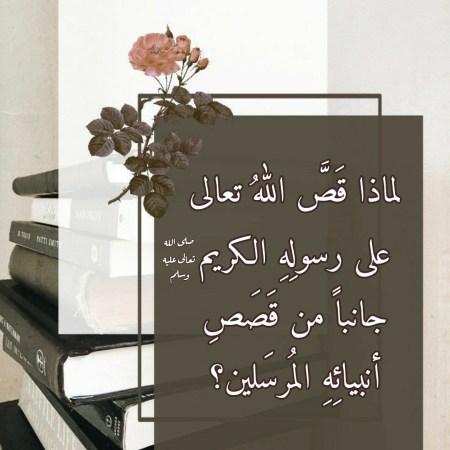 لماذا قَصَّ اللهُ تعالى
على رسولِهِ الكريم صلى الله تعالى عليه وسلم
جانباً من قَصَصِ
أنبيائِهِ المُرسَلين؟
PATTI SMITH